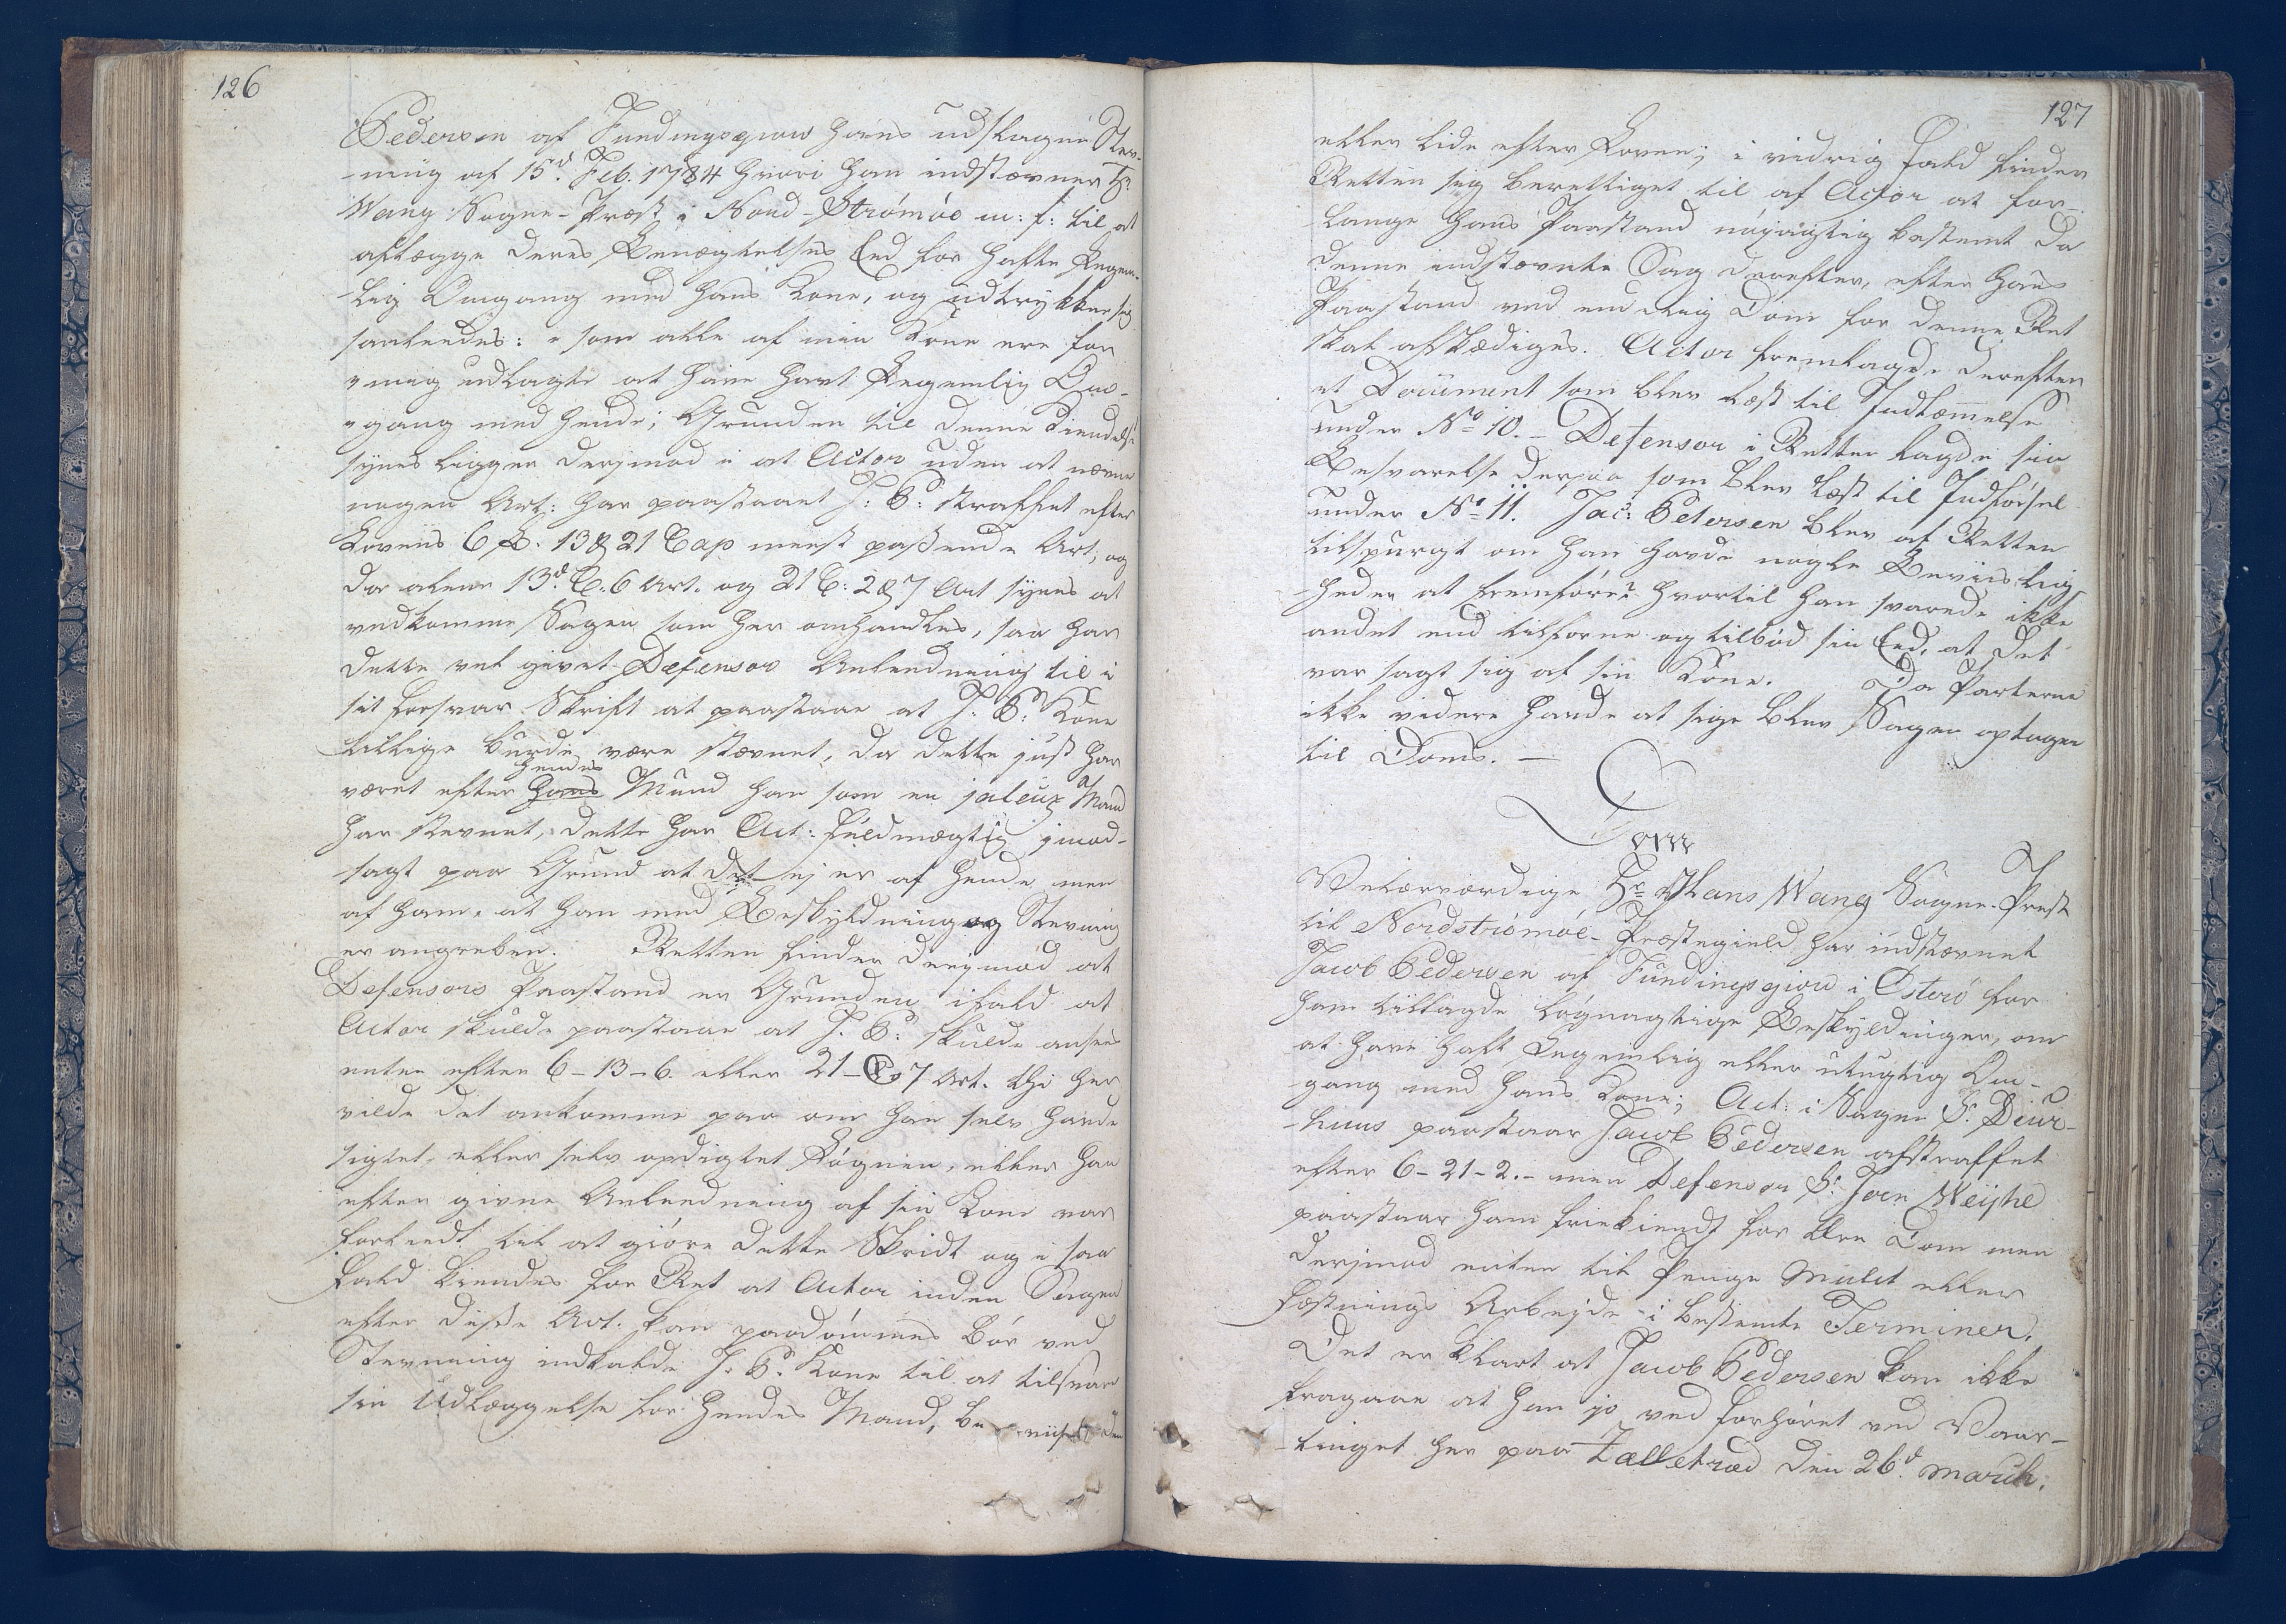 126
Pedersen af Fundingsgiow hans udstagne Stev-
-ning af 15d. Feb. 1784 hvori han indstævner Hr.
Wang Sogne-Præst i Nord-Strómóe m: f: til at
aflægge deres Benægtelses Eed for hafte Legem-
-lig Omgang med hans Kone, og udtrykker sig
saaleedes: "som alle af min Kone ere for
"mig udlagte at have havt Legemlig Om-
"gang med hende; Grunden til denne Kiendelse
synes ligger derimod i at Actor uden at nævne
nogen Art: har paastaaet J: P: straffet efter
Lovens 6 B. 13 & 21 Cap meest passende Art; og
da alene 13d. C. 6 Art. og 21 C: 2 & 7 Art synes at
vedkomme Sagen som her omhandles, saa har
dette vel givet Defensor Anleedning til i
sit Forsvar Skrift at paastaae at J. P: Kone
tillige burde være stævnet, da dette just har
hendes
været efter hans Mund han som en jaleux Mand
har stevnet, dette har Act: fuldmægtig imod-
-sagt paa Grund at det ej er af hende men
af ham, at han med Beskyldning og Stevning
er angreben. Retten finder derimod at
Defensors Paastand er Grunden ifald at
Actor skulde paastaae at J. P: skulde ansees
enten efter 6-13-6. eller 21-C. 7 Art. thi her
vilde det ankomme paa om han selv havde
sigtet eller selv opdigtet Løgnen, eller han
efter given Anleedning af sin Kone var
forleedt til at giøre dette Skridt og i saa
Fald kiendes for Ret at Actor inden Sagen
efter disse Art. kan paadømmes bør ved
Stevning indkalde J. P. Kone til at tilsvare
sin Udlæggelse for hendes Mand, be viise den
127
eller lide efter Loven; i vidrig fald finder
Retten sig berettiget til af Actor at for-
-lange hans Paastand nøyagtig bestemt da
denne indstævnte Sag derefter, efter hans
Paastand ved endelig Dom for denne Ret
skal afskædiges. Actor fremlagde derefter
et Document som blev læst til Indlemmelse
under No. 10. - Defensor i Retten lagde sin
Besvarelse derpaa som blev læst til Indførsel
under No. 11. Jac: Petersen blev af Retten
tilspurgt om han havde nogle Beviislig-
-heder at fremføre? hvortil han svarede ikke
andet end tilforne og tilbød sin Eed, at det
var sagt sig af sin Kone. Da Parterne
ikke videre havde at sige blev Sagen optagen
til Doms. -
Dom
Velærværdige Hr. Hans Wang Sogne-Præst
til Nordstrómóe-Præstegield har indstævnet
Jacob Pedersen af Fundingsgiow i Østerö for
ham tillagde løgnagtige Beskyldninger, om
at have haft Legemlig eller utugtig Om-
-gang med hans Kone; Act: i Sagen Sr. Diur-
-huus paastaar Jacob Pedersen afstraffet
efter 6-21-2.- men Defensor Sr. Joen Weyhe
paastaar ham frikiendt for Ære Dom men
derimod enten til Penge Mulct eller
Fæstnings Arbejde i bestemte Terminer.
Det er klart at Jacob Pedersen kan ikke
fragaae at han jo ved Forhøret ved Vaar-
-tinget her paa Zælletræd den 26d. March: